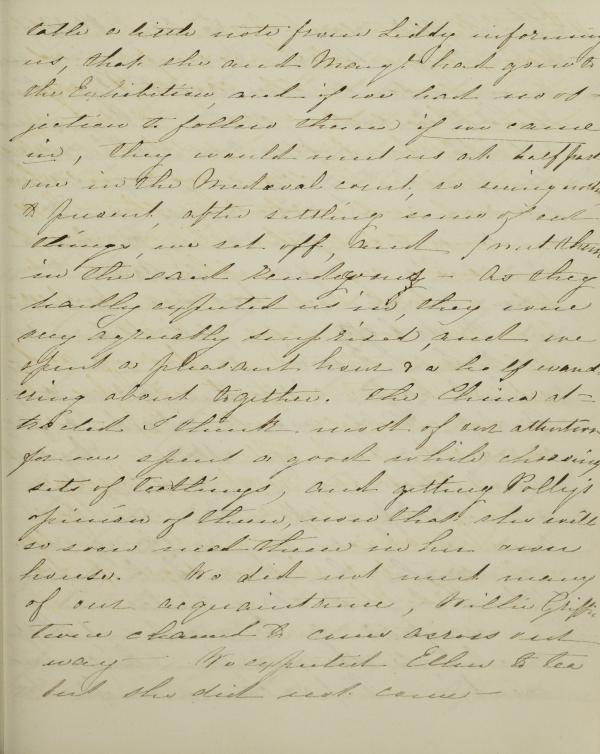 table a little note from Liddy informing
us, that she and Mary had gone to
the Exhibition, and if we had no ob-
jection to follow them if we came
in, they would meet us at half past
one in the Medeval court, so seeing
& present, after settling some of our
things, we set off, and met them
in the said rendezvous - As they
hardly expected us in, they were
very agreeably surprised, and we
spent a pleasant hour & a half wand-
ering about together. The China at=
tracted I think most of our attention
for we spent a good while choosing
sets of teathings, and getting Polly's
opinion of them, now that she will
so soon need them in her own
house. We did not meet many
of our acquaintance, Willie Griffin
twice chanced to come across our
way - We expected Ellen to tea
but she did not come -